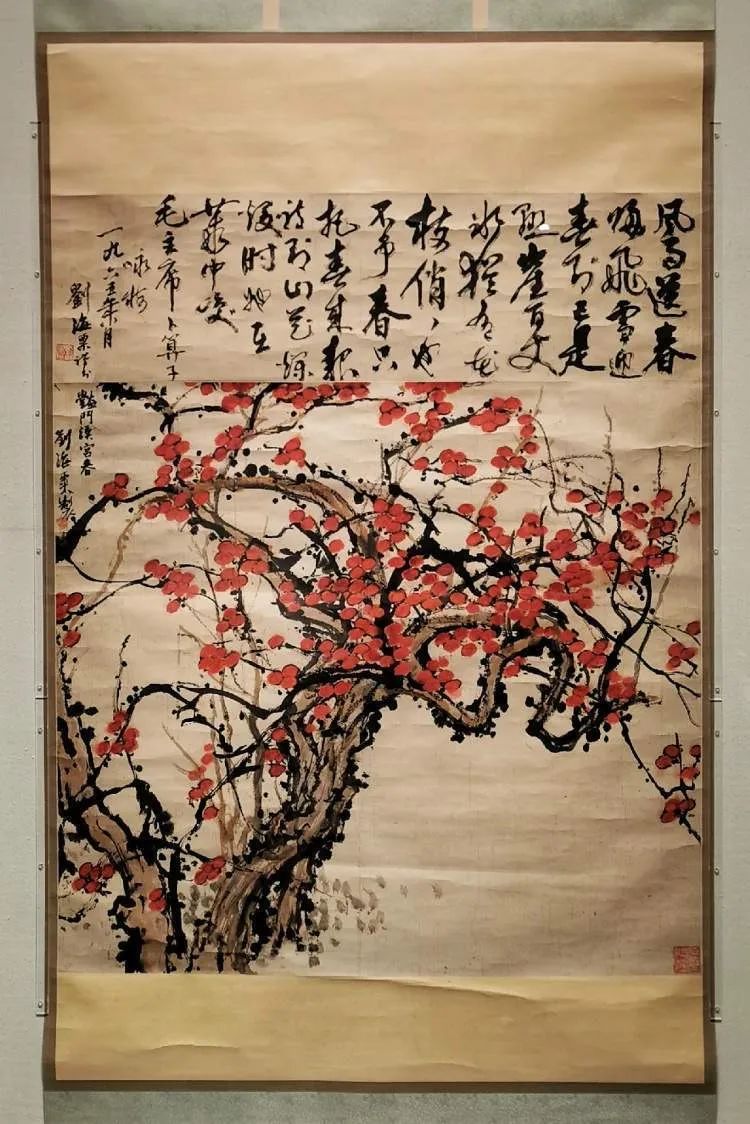 風雨送春
歸飛雪迎
春到已是
懸崖百丈
冰猶有花
枝俏〻也
不争春只
把春來報
待到山花爛
漫时她在
叢中笑
毛主席卜算子
咏梅
一九六五年月
劉海粟
門漢宮春
劉海粟